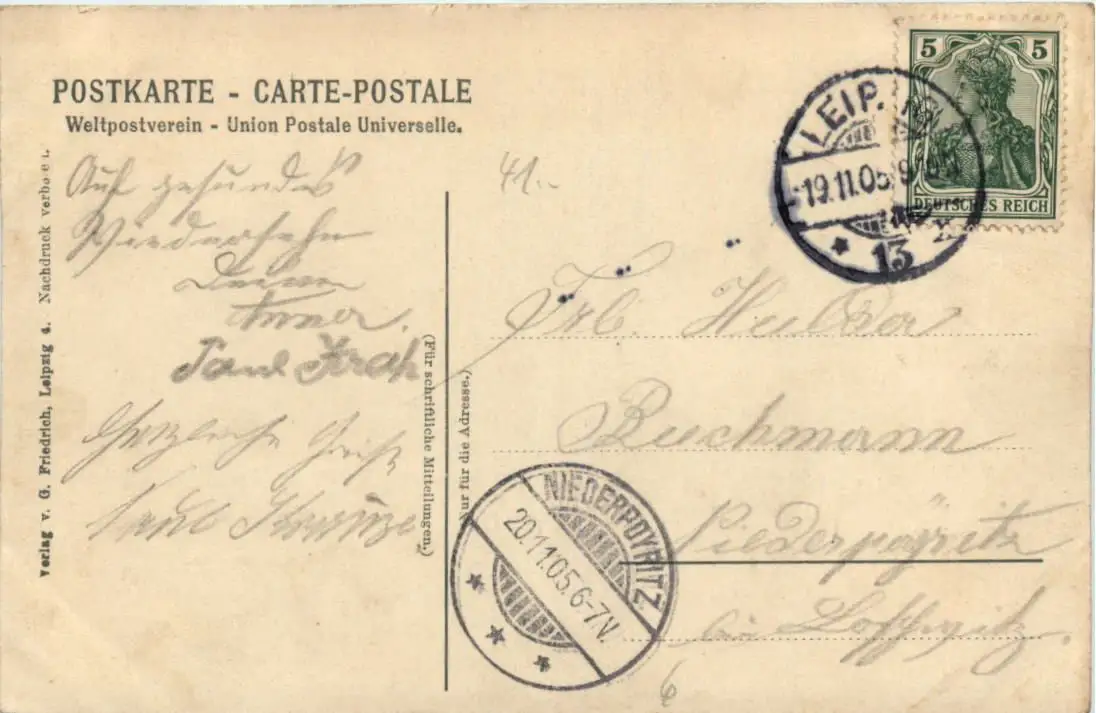 POSTKARTE - CARTE-POSTALE
Weltpostverein - Union Postale Universelle.
Auf gesundes
Wiedersehn
Deine
Anna.
Paul
Herzliche Grüße
Paul
Verlag v. G. Friedrich, Leipzig 4. Nachdruck verboten.
(Für schriftliche Mitteilungen.)
(Nur für die Adresse.)
41.-
5 5
DEUTSCHES REICH
LEIP
19.11.05
13
Frl.
Buchmann
Niederpoyritz
bei Loschwitz.
NIEDERPOYRITZ
20.11.05.6-7V.
6